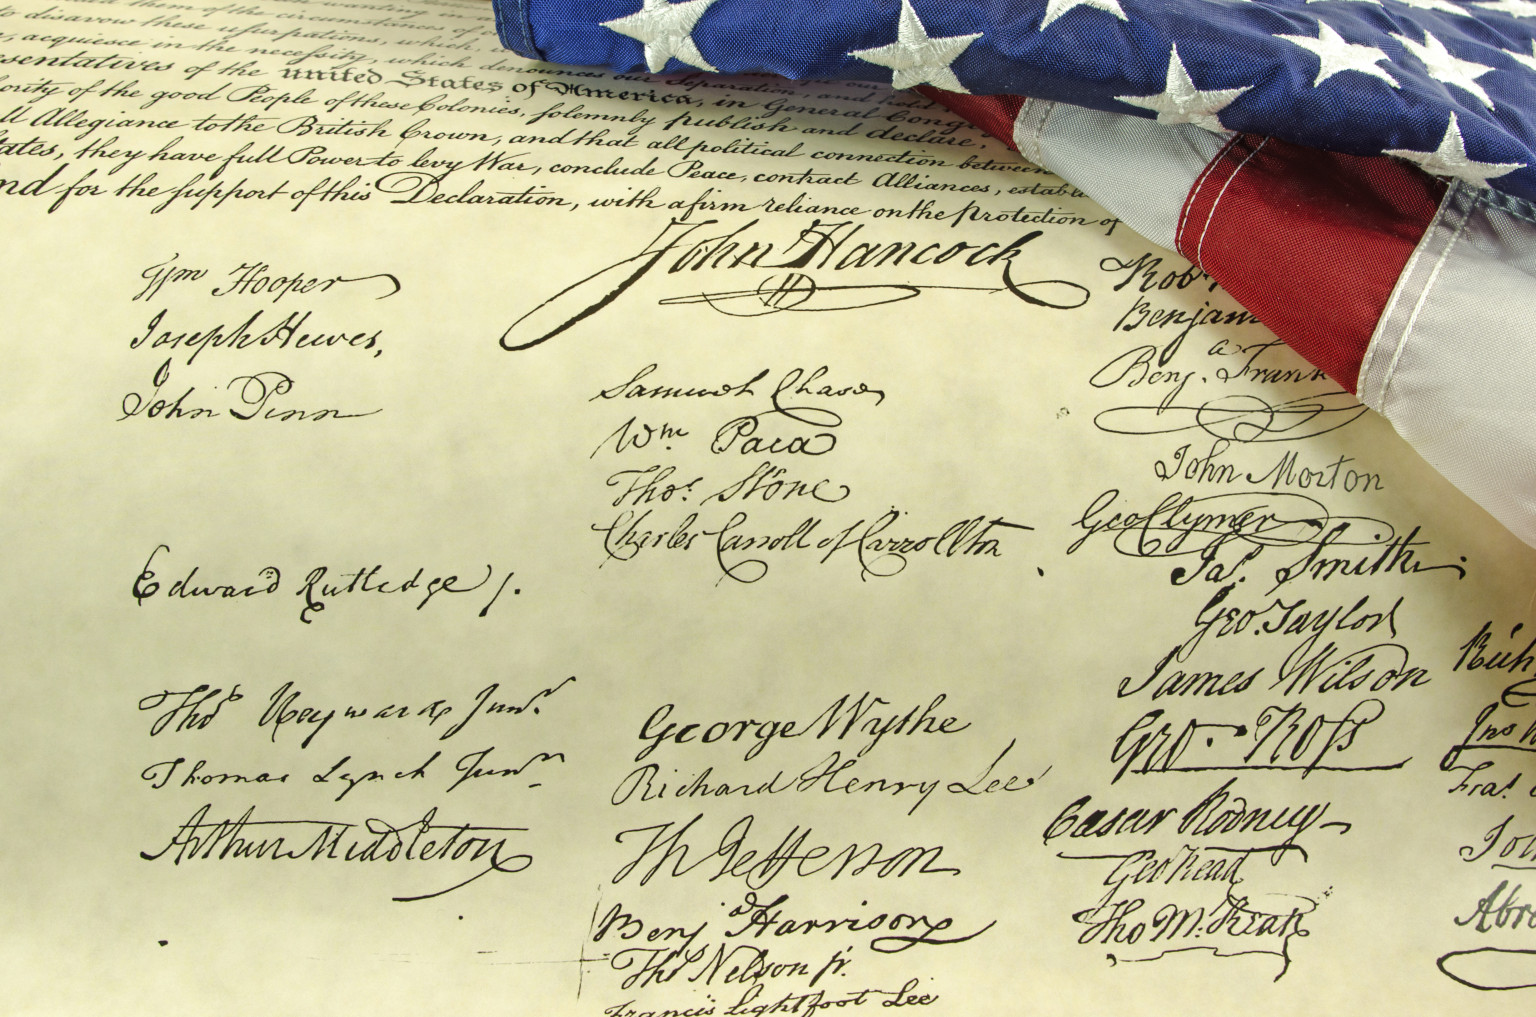 to disavow these usurpations, which,
, acquiesce in the necessity, which denounces our Separation, and hold
sentatives of the united States of America, in General Congr
ority of the good People of these Colonies, solemnly publish and declare,
ll Allegiance to the British Crown, and that all political connection between
tates, they have full Power to levy War, conclude Peace, contract Alliances, establ
nd for the support of this Declaration, with a firm reliance on the protection of
John Hancock
Wm Hooper
Joseph Hewes,
John Penn
Edward Rutledge /.
Thos Heyward Junr.
Thomas Lynch Junr.
Arthur Middleton
Samuel Chase
Wm. Paca
Thos. Stone
Charles Carroll of Carrollton
George Wythe
Richard Henry Lee
Th Jefferson
Benj Harrison
Thos Nelson jr.
Francis Lightfoot Lee
Rob
Benjam
Benj. Frank
John Morton
Geo Clymer
Jas. Smith.
Geo. Taylor
James Wilson
Geo. Ross
Caesar Rodney
Geo Read
Tho M:Kean
Rich
Jno
Fras.
Joh
Abra